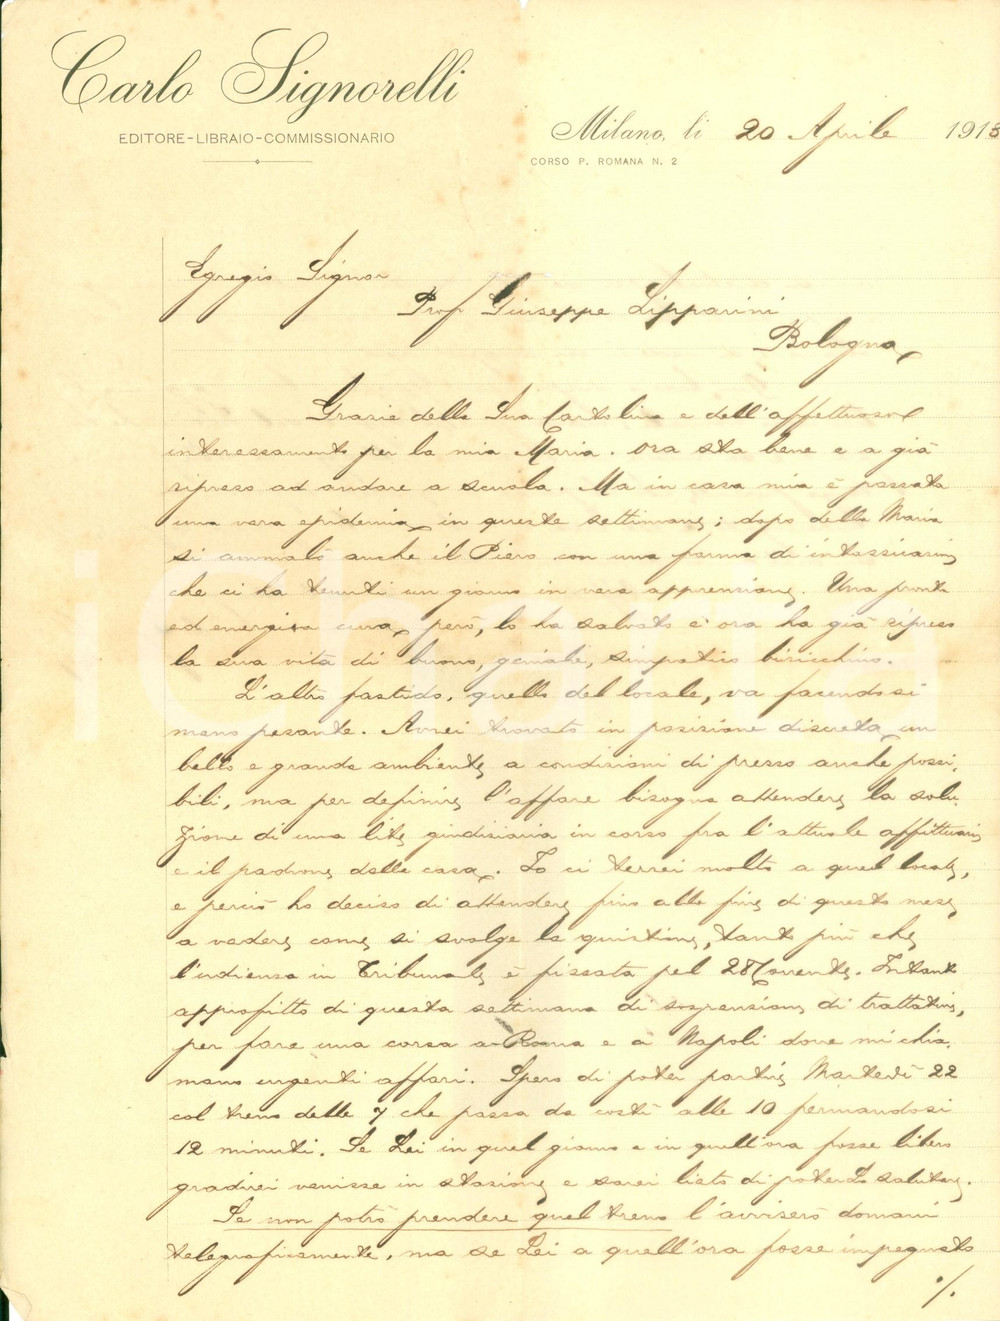 Carlo Signorelli
EDITORE-LIBRAIO-COMMISSIONARIO
Milano, li 20 Aprile 1913
CORSO P. ROMANA N. 2
Egregio Signor
Prof Giuseppe Lipparini
Bologna
Grazie della Sua Cartolina e dell'affettuoso
interessamento per la mia Maria. Ora sta bene e a già
ripreso ad andare a scuola. Ma in casa mia è passata
una vera epidemia in queste settimane; dopo della Maria
si ammalò anche il Piero con una forma di intossicazione
che ci ha tenuti un giorno in vera apprensione. Una pronta
ed energica cura, però, lo ha salvato e ora ha già ripreso
la sua vita di buono, geniale, simpatico biricchino.
L'altro fastido, quello del locale, va facendosi
mano pesante. Avrei trovato in posizione discreta un
bello e grande ambiente a condizioni di prezzo anche possi-
bili, ma per definire l'affare bisogna attendere la solu-
zione di una lite giudiziaria in corso fra l'attuale affittuario
e il padrone della casa. Io ci terrei molto a quel locale,
e perciò ho deciso di attendere fino alla fine di questo mese
a vedere come si svolge la quistione, tanto più che
l'udienza in Tribunale è fissata pel 28 Corrente. Intanto
approfitto di questa settimana di sospensione di trattative,
per fare una corsa a Roma e a Napoli dove mi chia-
mano urgenti affari. Spero di poter partire Martedì 22
col treno delle 7 che passa da costì alle 10 fermandosi
12 minuti. Se Lei in quel giorno e in quell'ora fosse libero
gradirei venisse in stazione e sarei lieto di poterLo salutare.
Se non potrò prendere quel treno l'avviserò domani
telegraficamente, ma se Lei a quell'ora fosse impegnato
./.
iCharta